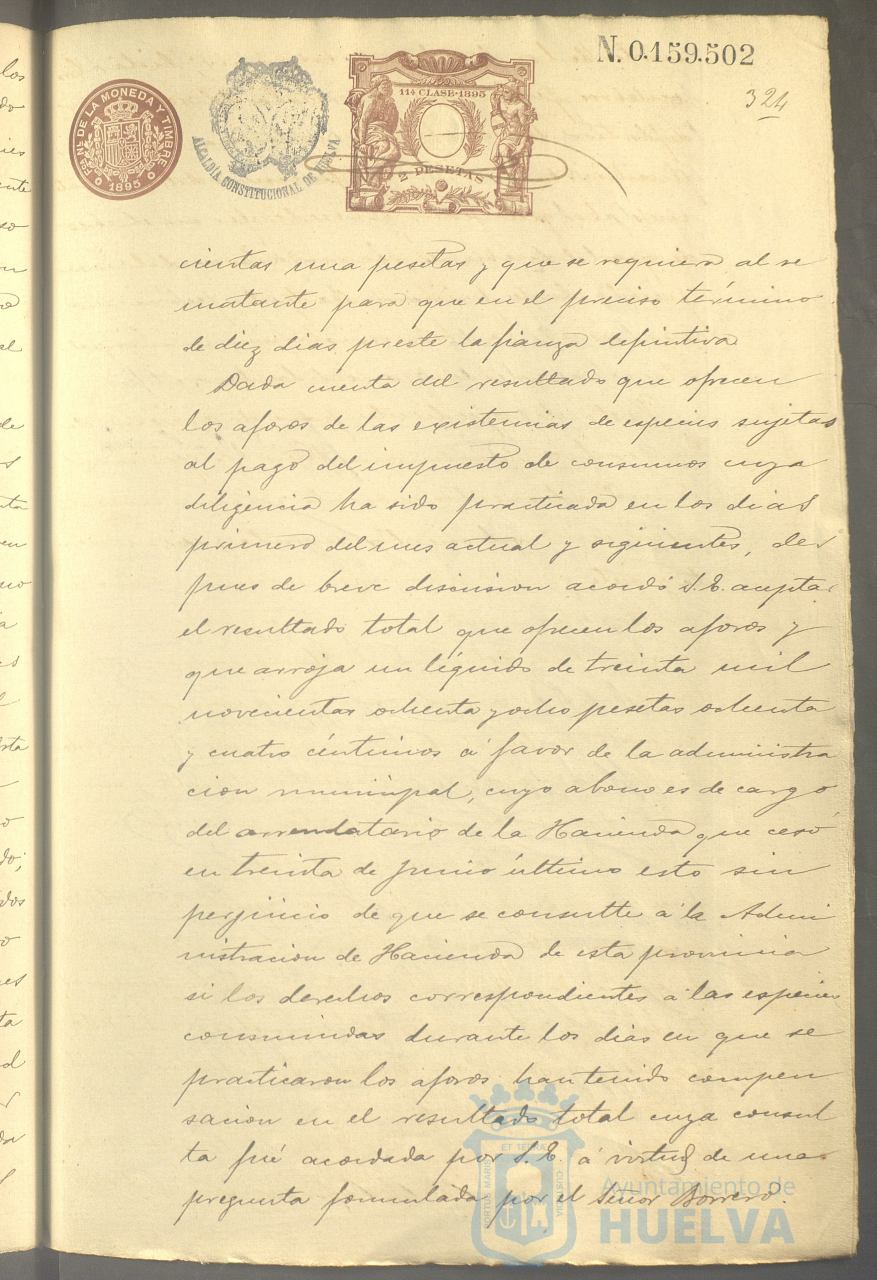 N. 0.159.502
324
FCA. NL. DE LA MONEDA Y TIMBRE
1895
ALCALDÍA CONSTITUCIONAL DE HUELVA
11ª CLASE-1895
2 PESETAS
cientas una pesetas y que se requiera al re
matante para que en el preciso término
de diez dias preste la fianza definitiva
Dada cuenta del resultado que ofrecen
los aforos de las existencias de especies sujetas
al pago del impuesto de consumos cuya
diligencia ha sido practicada en los dias
primero del mes actual y siguientes, des
pues de breve discusion acordó S.E. aceptar
el resultado total que ofrecen los aforos y
que arroja un líquido de treinta mil
novecientas ochenta y ocho pesetas ochenta
y cuatro céntimos á favor de la administra
cion municipal, cuyo abono es de cargo
del arrendatario de la Hacienda que cesó
en treinta de Junio último esto sin
perjuicio de que se consulte á la Admi
nistracion de Hacienda de esta provincia
si los derechos correspondientes á las especies
consumidas durante los dias en que se
practicaron los aforos han tenido compen
sacion en el resultado total cuya consul
ta fué acordada por S.E. á virtud de una
pregunta formulada por el Señor Borrero.
PORTUS MARIS ET TERRAE CUSTODIA
Ayuntamiento de
HUELVA